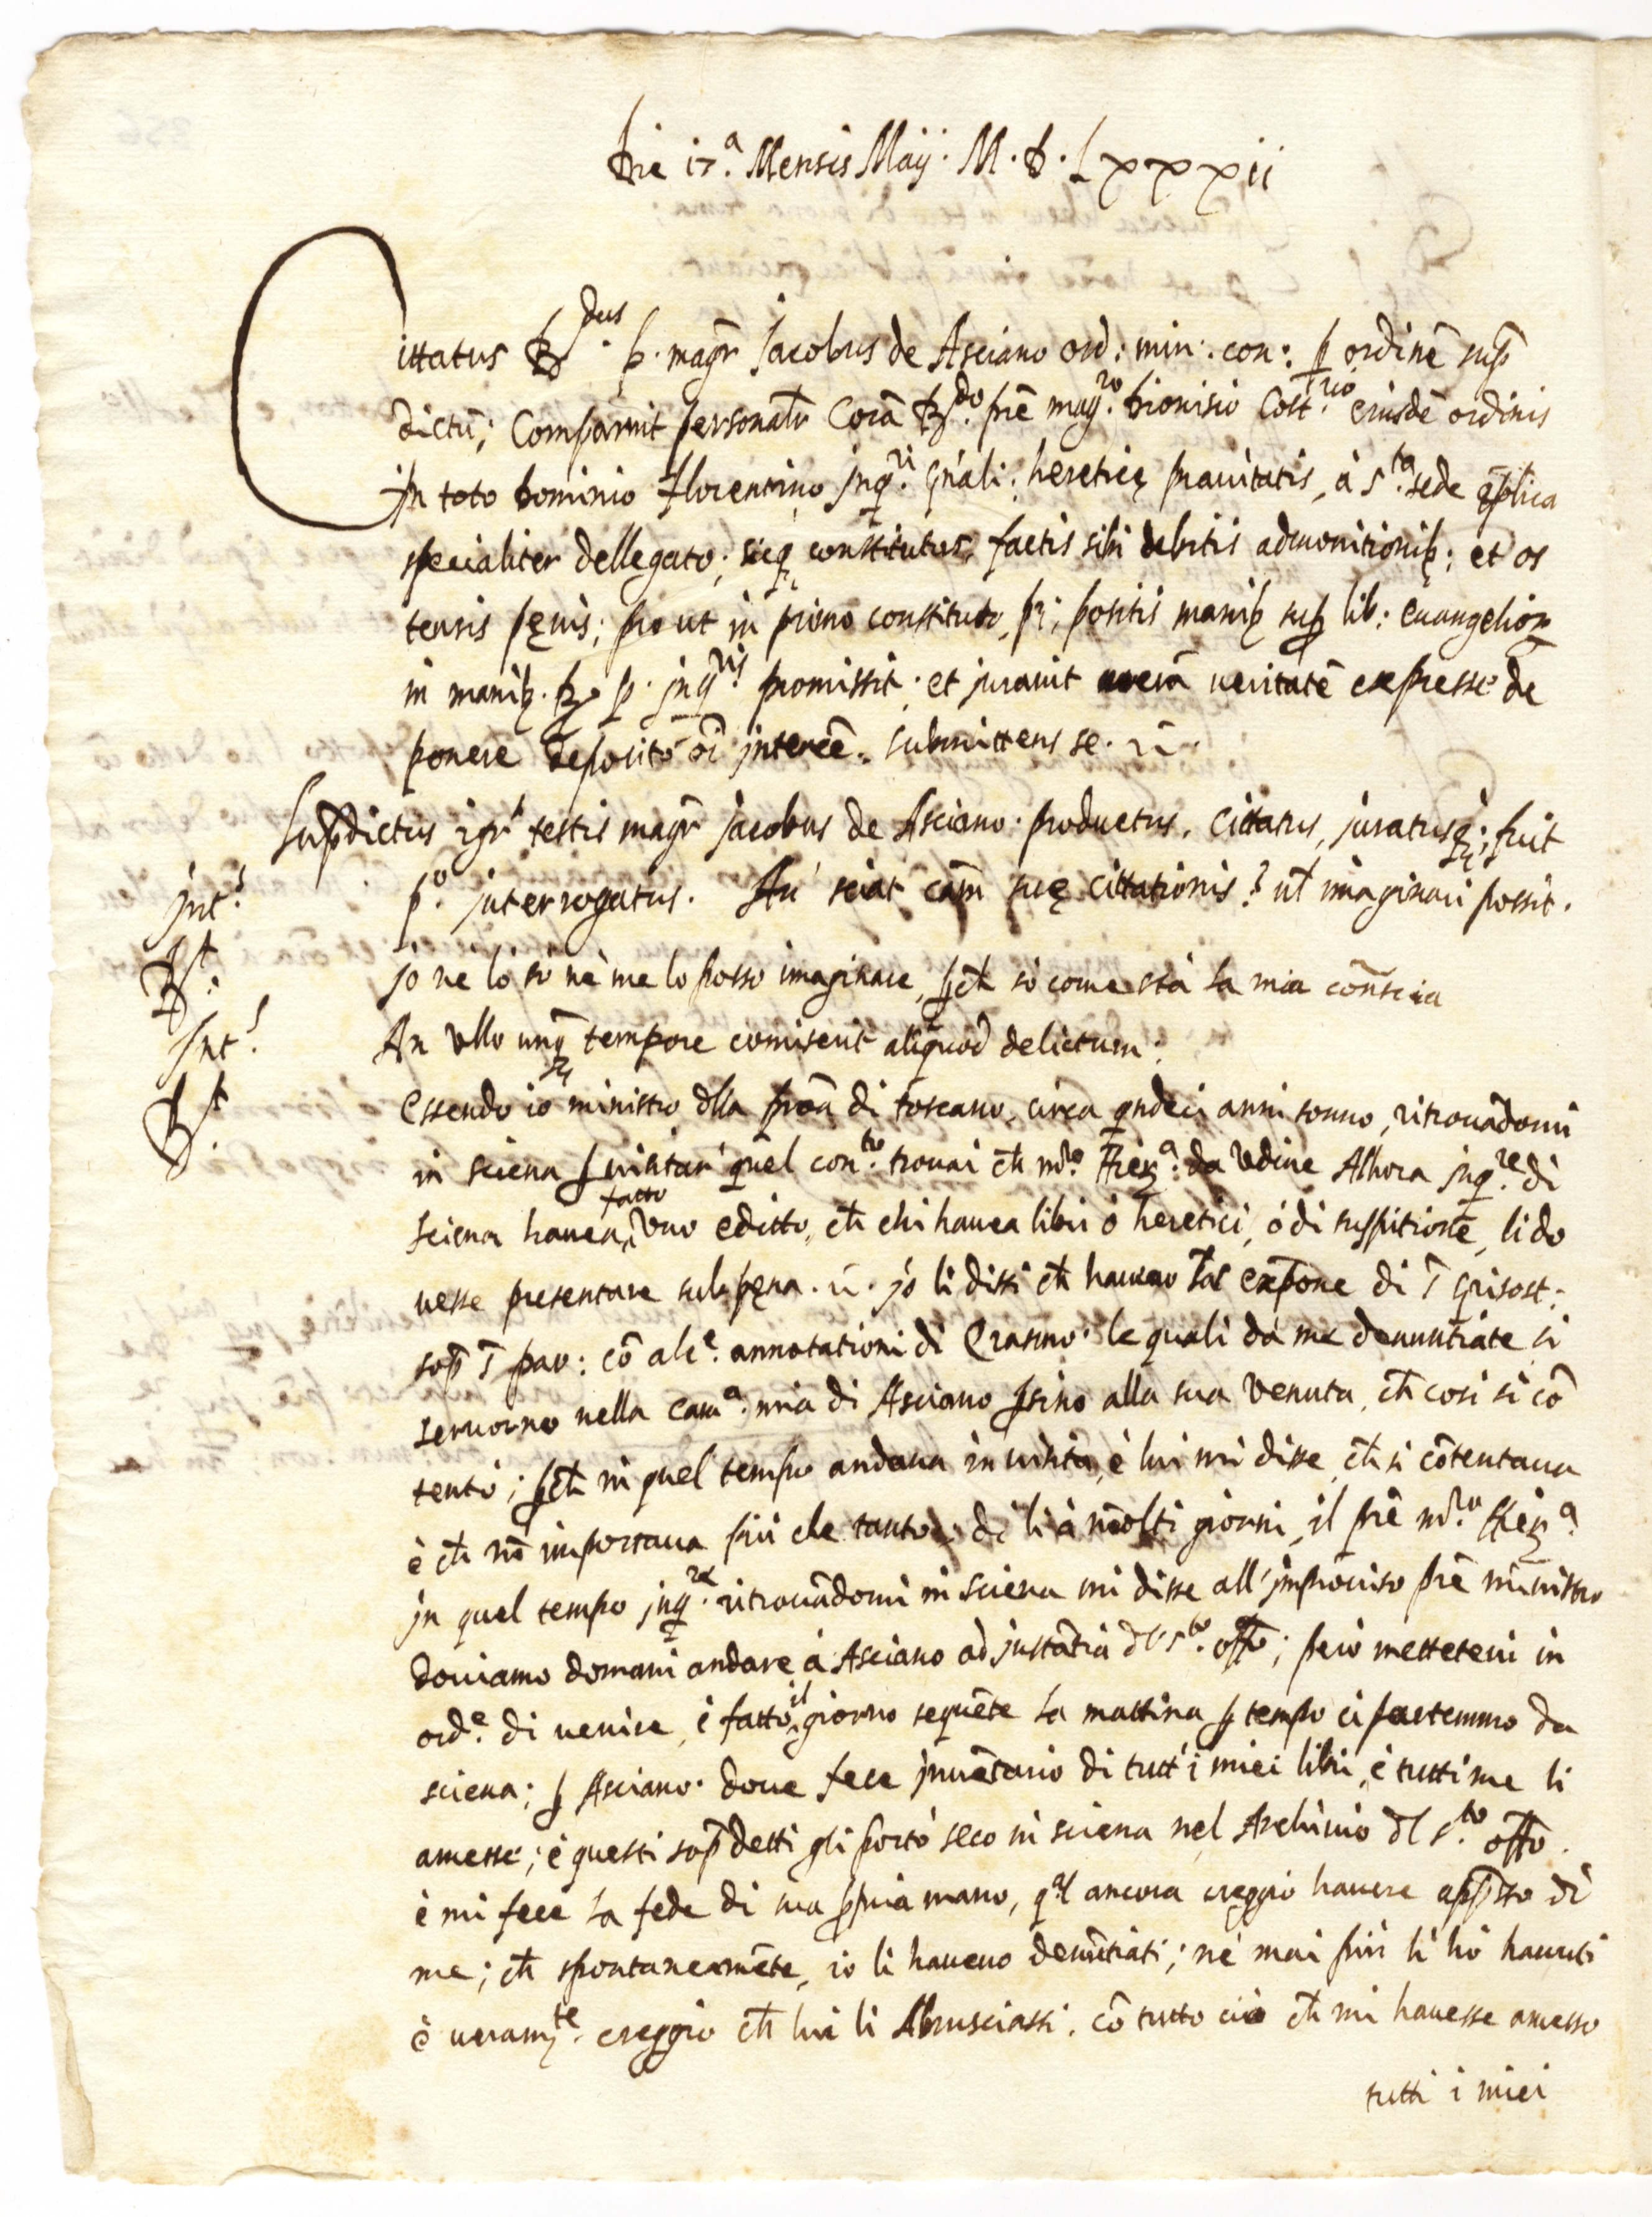 Die i7.ª Mensis Maij. M. D. Lxxxii
Cittatus R.dus p. magr̃ Jacobus de Asciano ord: min: con: ꝑ ordinẽ sup̃
dictũ; Comparuit personalr̃ Corã R.do prẽ mag.ro Dionisio Cost.rio eiusdẽ ordinis
In toto Dominio Florentino Jnq.ri gñali: hereticę prauitatis, à s.ta sede apl̃ica
specialiter dellegato; sicq; constitutus, factis sibi debitis admonitionib;: et os
tensis pęnis; prout in primo constituto, pr̃; positis manib; sup̃ lib: euangelioꝝ
in manib. R. p. jnq.ris promissit; et jurauit ueritatẽ expresse de
ponere deposito oĩ interẽe. submittens se. ñ.
Sup̃dictus igr̃ testis magr̃ Jacobus de Asciano. productus. Cittatus, juratusq;; fuit
jnt.s p.o interrogatus. An' sciat cãm suę cittationis? ul̃ imaginari possit.
R.t: jo ne lo so ne me lo posso imaginare, ꝑch̃ sò come stà la mia coñscia
Jnt.s An vllo unq; tempore comiserit aliquod delictum:
R.t Essendo io ministro dl̃la proã di toscano, circa qndeci anni sonno, ritrouãdomi
in sciena ꝑ uisitar' quel con.to trouai ch̃ m̃.ro Hier.ª da Vdine Alhora jnq.re di
sciena hauea fatto vno editto, ch̃ chi hauea libri ò heretici, ò di suspitione, li do
uesse presentare sub pęna. ñ. jo li dissi ch̃ haueuo expone di s̃ Grisost:
sop̃ s̃ pau: cõ alc.e annotationi di Erasmo. le quali da me denuntiate si
seruorno nella cam.ª mia di Asciano ꝑsino alla sua venuta, ch̃ cosi si cõ
tentò; ꝑch̃ in quel tempo andaua in uisita, è lui mi disse, ch̃ si cõtentaua
è ch̃ nõ importaua più che tanto: di li à molti giorni, il prẽ m̃.ro Hier.ª
jn quel tempo jnq.re ritrouãdomi in sciena mi disse all'jmprouiso prẽ ministro
douiamo domani andare à Asciano ad justãtia dl' s.to off.o; però metteteui in
ord.e di uenire, è fatto il giorno sequẽte la mattina ꝑ tempo ci partemmo da
sciena; ꝑ Asciano. doue fece juuẽtario di tutt'i miei libri, è tutti me li
amesse; è questi sop̃detti gli portò seco in sciena nel Archiuio dl s.to off.o.
è mi fece la fede di sua ꝓpria mano, q.al ancora creggio hauere app̃sso di
me; ch̃ spontaneamẽte, io li haueuo denũtiati; nè mai più li hò hauuti
è ueram.te creggio ch̃ lui li Abrusciassi. cõ tutto ciò ch̃ mi hauesse amesso
tutti i miei